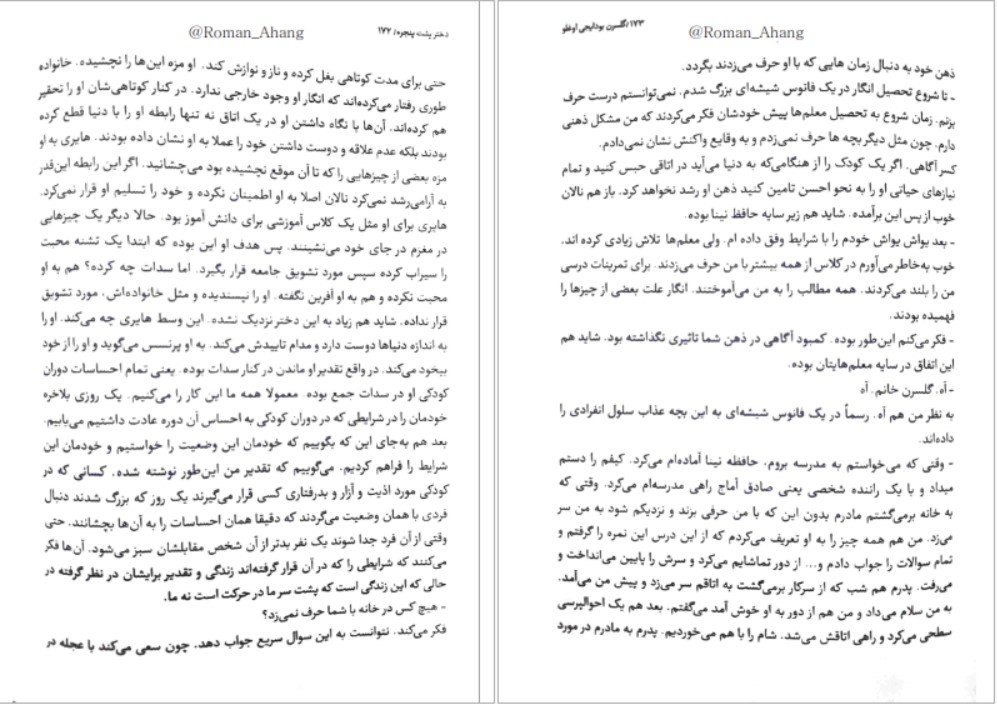 @Roman_Ahang
دختر پشت پنجره/ ۱۷۲
حتی برای مدت کوتاهی بغل کرده و ناز و نوازش کند. او مزه این‌ها را نچشیده. خانواده
طوری رفتار می‌کرده‌اند که انگار او وجود خارجی ندارد. در کنار کوتاهی‌شان او را تحقیر
هم کرده‌اند. آن‌ها با نگاه داشتن او در یک اتاق نه تنها رابطه او را با دنیا قطع کرده
بودند بلکه عدم علاقه و دوست داشتن خود را عملا به او نشان داده بودند. هایری به او
مزه بعضی از چیزهایی را که تا آن موقع نچشیده بود می‌چشانید. اگر این رابطه این‌قدر
به آرامی‌رشد نمی‌کرد نالان اصلا به او اطمینان نکرده و خود را تسلیم او قرار نمی‌کرد.
هایری برای او مثل یک کلاس آموزشی برای دانش آموز بود. حالا دیگر یک چیزهایی
در مغزم در جای خود می‌نشینند. پس هدف او این بوده که ابتدا یک تشنه محبت
را سیراب کرده سپس مورد تشویق جامعه قرار بگیرد. اما سدات چه کرده؟ هم به او
محبت نکرده و هم به او آفرین نگفته. او را نپسندیده و مثل خانواده‌اش، مورد تشویق
قرار نداده. شاید هم زیاد به این دختر نزدیک نشده. این وسط هایری چه می‌کند. او را
به اندازه دنیاها دوست دارد و مدام تاییدش می‌کند. به او پرنسس می‌گوید و او را از خود
بیخود می‌کند. در واقع تقدیر او ماندن در کنار سدات بوده. یعنی تمام احساسات دوران
کودکی او در سدات جمع بوده. معمولا همه ما این کار را می‌کنیم. یک روزی بلاخره
خودمان را در شرایطی که در دوران کودکی به احساس آن دوره عادت داشتیم می‌یابیم.
بعد هم به‌جای این که بگوییم که خودمان این وضعیت را خواستیم و خودمان این
شرایط را فراهم کردیم، می‌گوییم که تقدیر من این‌طور نوشته شده. کسانی که در
کودکی مورد اذیت و آزار و بدرفتاری کسی قرار می‌گیرند یک روز که بزرگ شدند دنبال
فردی با همان وضعیت می‌گردند که دقیقا همان احساسات را به آن‌ها بچشانند. حتی
وقتی از آن فرد جدا شوند یک نفر بدتر از آن شخص مقابلشان سبز می‌شود. آن‌ها فکر
می‌کنند که شرایطی را که در آن قرار گرفته‌اند زندگی و تقدیر برایشان در نظر گرفته در
حالی که این زندگی است که پشت سر ما در حرکت است نه ما.
- هیچ کس در خانه با شما حرف نمی‌زد؟
فکر می‌کند. نتوانست به این سوال سریع جواب دهد. چون سعی می‌کند با عجله در
@Roman_Ahang
۱۷۳/گلسرن بودایجی اوغلو
ذهن خود به دنبال زمان هایی که با او حرف می‌زدند بگردد.
- تا شروع تحصیل انگار در یک فانوس شیشه‌ای بزرگ شدم. نمی‌توانستم درست حرف
بزنم. زمان شروع به تحصیل معلم‌ها پیش خودشان فکر می‌کردند که من مشکل ذهنی
دارم. چون مثل دیگر بچه ها حرف نمی‌زدم و به وقایع واکنش نشان نمی‌دادم.
کسر آگاهی. اگر یک کودک را از هنگامی‌که به دنیا می‌آید در اتاقی حبس کنید و تمام
نیازهای حیاتی او را به نحو احسن تامین کنید ذهن او رشد نخواهد کرد. باز هم نالان
خوب از پس این برآمده. شاید هم زیر سایه حافظ نینا بوده.
- بعد یواش یواش خودم را با شرایط وفق داده ام. ولی معلم‌ها تلاش زیادی کرده اند.
خوب به‌خاطر می‌آورم در کلاس از همه بیشتر با من حرف می‌زدند. برای تمرینات درسی
من را بلند می‌کردند. همه مطالب را به من می‌آموختند. انگار علت بعضی از چیزها را
فهمیده بودند.
- فکر می‌کنم این‌طور بوده. کمبود آگاهی در ذهن شما تاثیری نگذاشته بود. شاید هم
این اتفاق در سایه معلم‌هایتان بوده.
-آه. گلسرن خانم. آه
به نظر من هم آه. رسماً در یک فانوس شیشه‌ای به این بچه عذاب سلول انفرادی را
داده‌اند.
- وقتی که می‌خواستم به مدرسه بروم، حافظه نینا آماده‌ام می‌کرد. کیفم را دستم
میداد و با یک راننده شخصی یعنی صادق آماج راهی مدرسه‌ام می‌کرد. وقتی که
به خانه برمی‌گشتم مادرم بدون این که با من حرفی بزند و نزدیکم شود به من سر
می‌زد. من هم همه چیز را به او تعریف می‌کردم که از این درس این نمره را گرفتم و
تمام سوالات را جواب دادم و... از دور تماشایم می‌کرد و سرش را پایین می‌انداخت و
می‌رفت. پدرم هم شب که از سرکار برمی‌گشت به اتاقم سر می‌زد و پیش من می‌آمد.
به من سلام می‌داد و من هم از دور به او خوش آمد می‌گفتم. بعد هم یک احوالپرسی
سطحی می‌کرد و راهی اتاقش می‌شد. شام را با هم می‌خوردیم. پدرم به مادرم در مورد